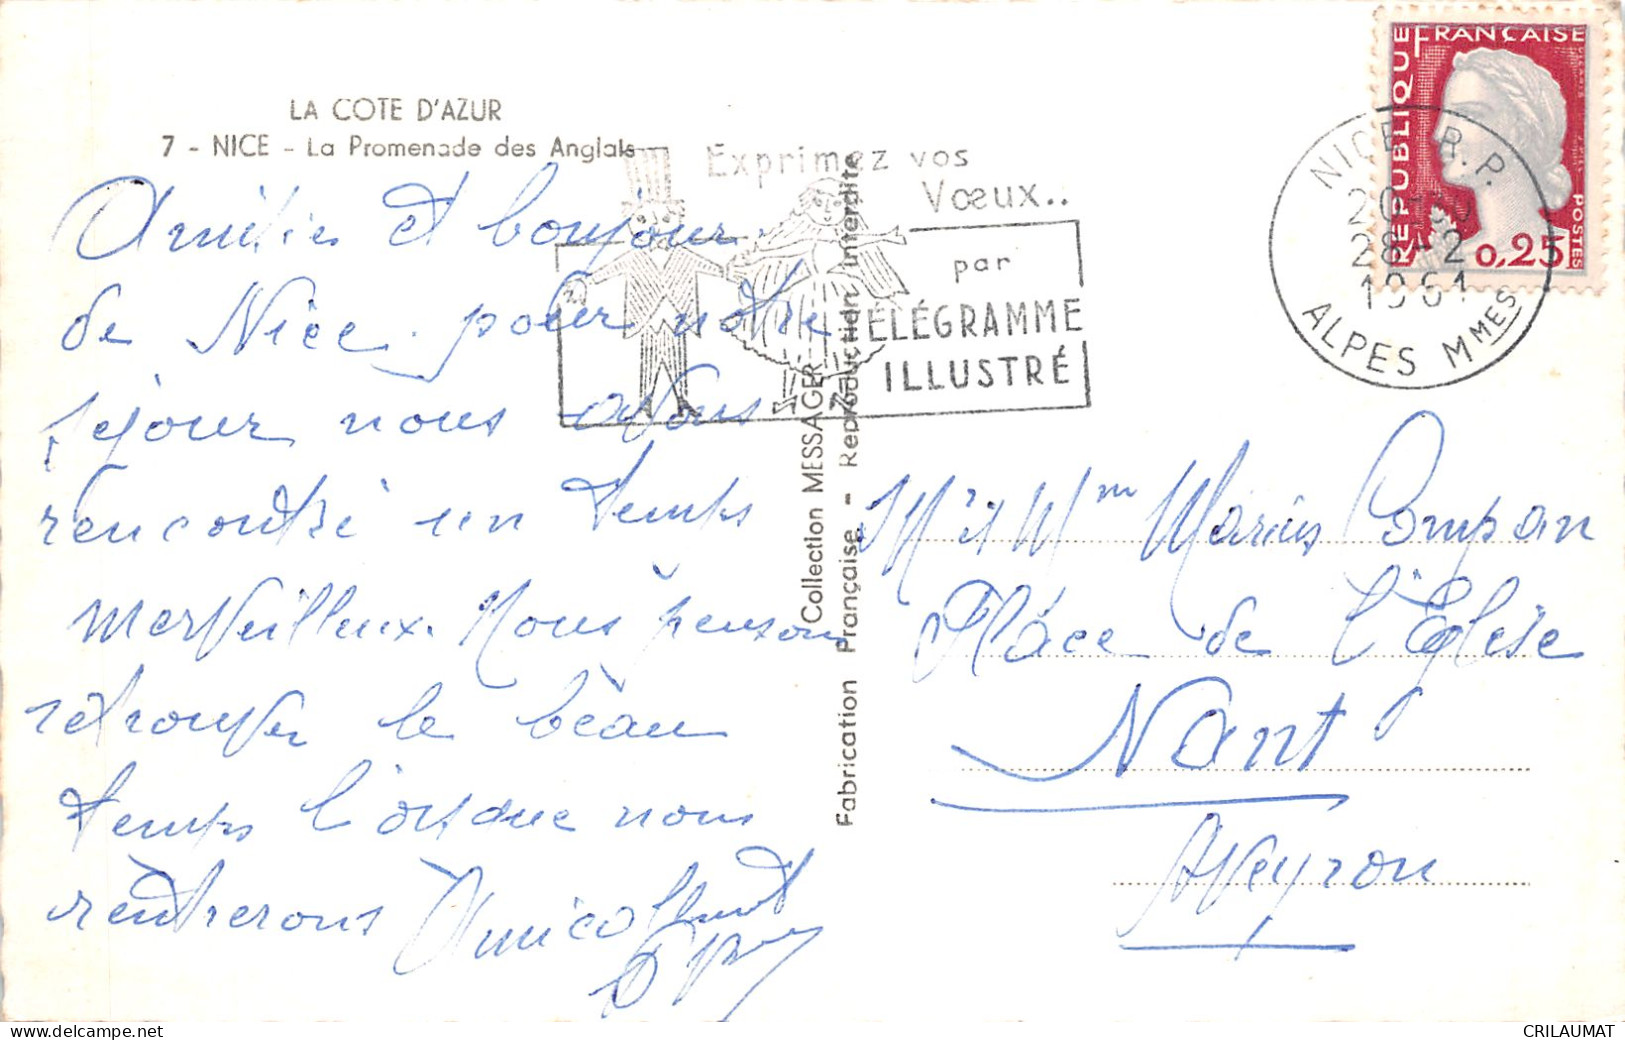 LA COTE D'AZUR
7 - NICE - La Promenade des Anglais
Amitiés et bonjour
de Nice. pour notre
séjour nous avons
rencontré un temps
merveilleux. Nous pensons
retrouver le beau
temps lorsque nous
rentrerons Amicalement
Exprimez vos
Vœux..
par
TÉLÉGRAMME
ILLUSTRÉ
Collection MESSAGER
Fabrication Française - Reproduction Interdite
RÉPUBLIQUE FRANÇAISE
POSTES
0,25
NICE R.P.
28-2
1961
ALPES MMES
Mr et Mme Marius Compan
Place de l'Eglise
Nant
Aveyron
CRILAUMAT